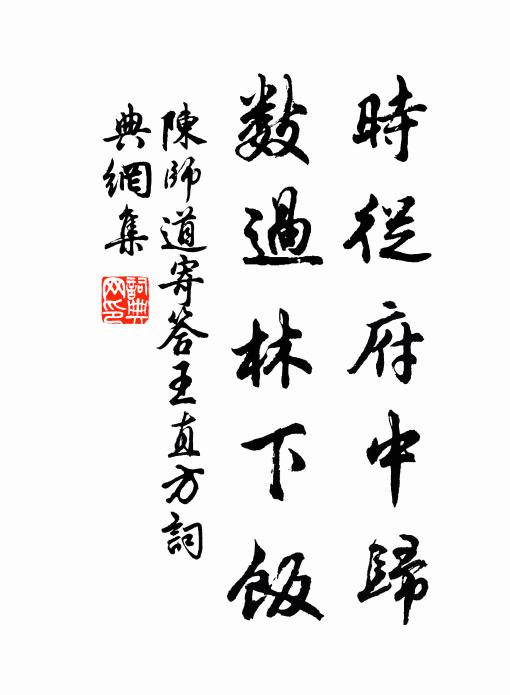 時從府中歸
數過林下飯
陳師道寄答王直方詞
典網集
詞典
网印